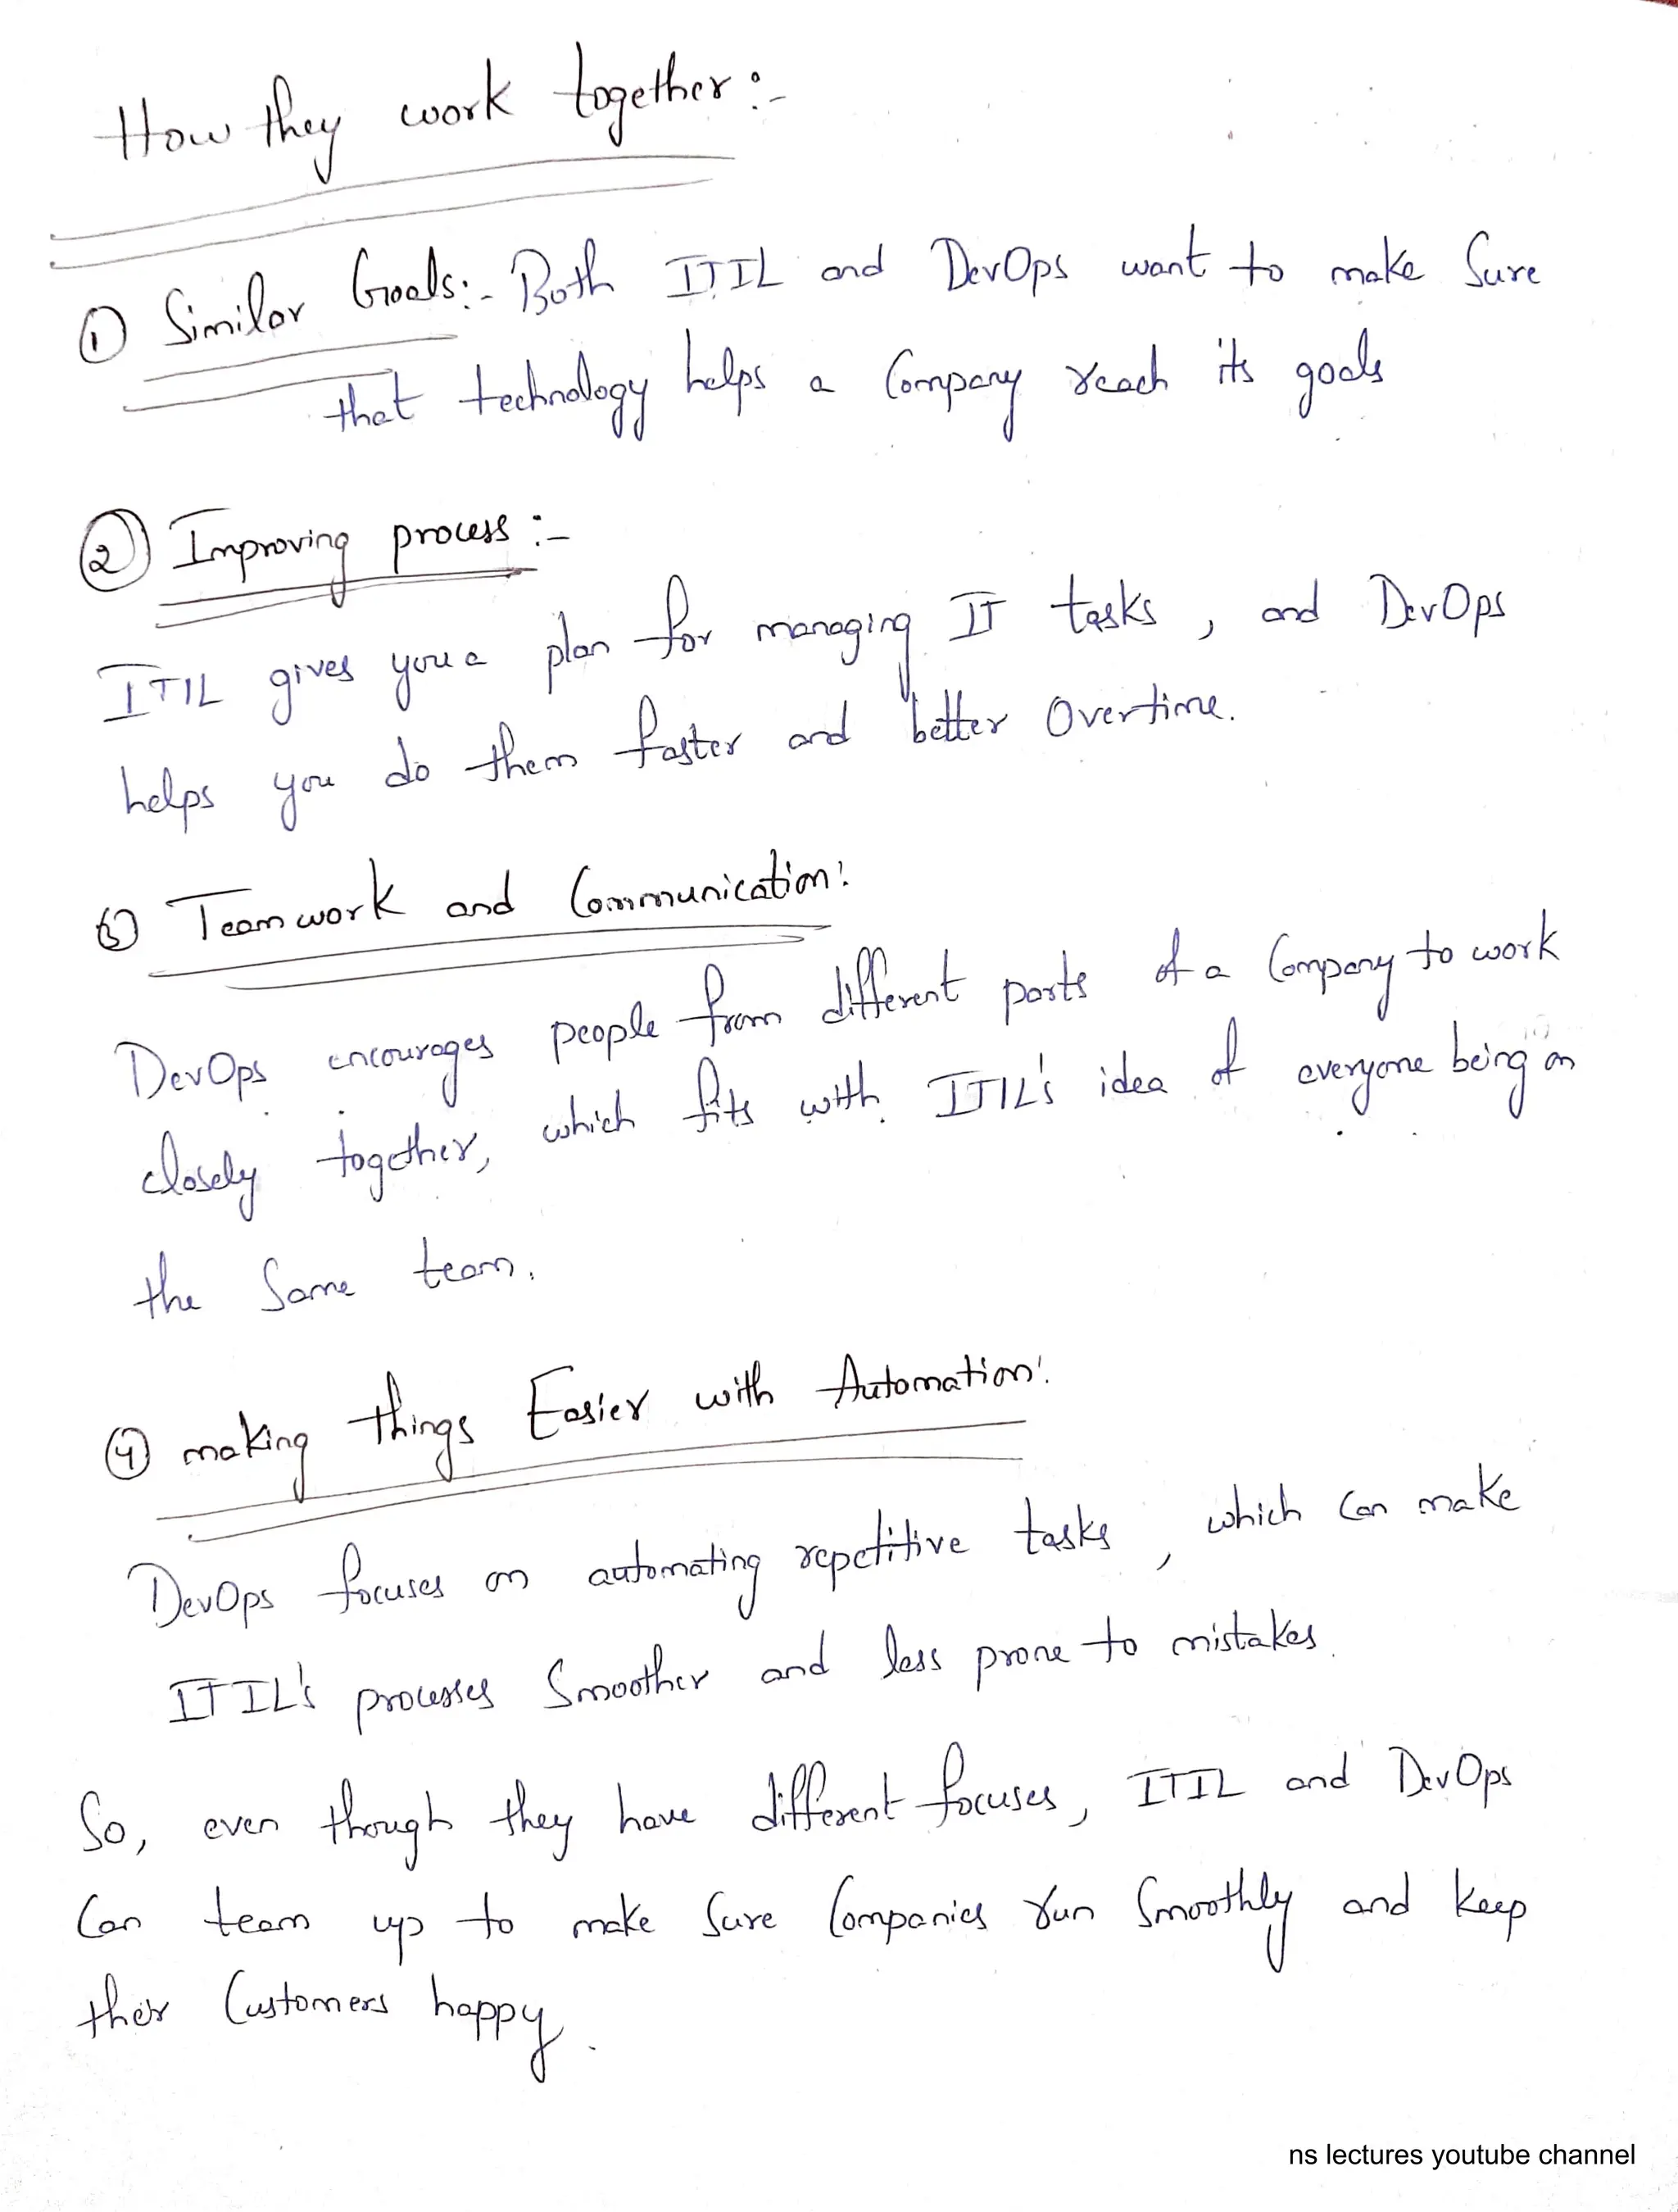 How they work together:-
① Similar Goals:- Both ITIL and DevOps want to make Sure
that technology helps a Company reach its goals
② Improving process:-
ITIL gives you a plan for managing IT tasks, and DevOps
helps you do them faster and better Overtime.
③ Teamwork and Communication:
DevOps encourages people from different parts of a Company to work
closely together, which fits with ITIL's idea of everyone being on
the Same team.
④ making things Easier with Automation:
DevOps focuses on automating repetitive tasks, which can make
ITIL's processes Smoother and less prone to mistakes.
So, even though they have different focuses, ITIL and DevOps
Can team up to make Sure Companies run Smoothly and keep
their Customers happy.
ns lectures youtube channel